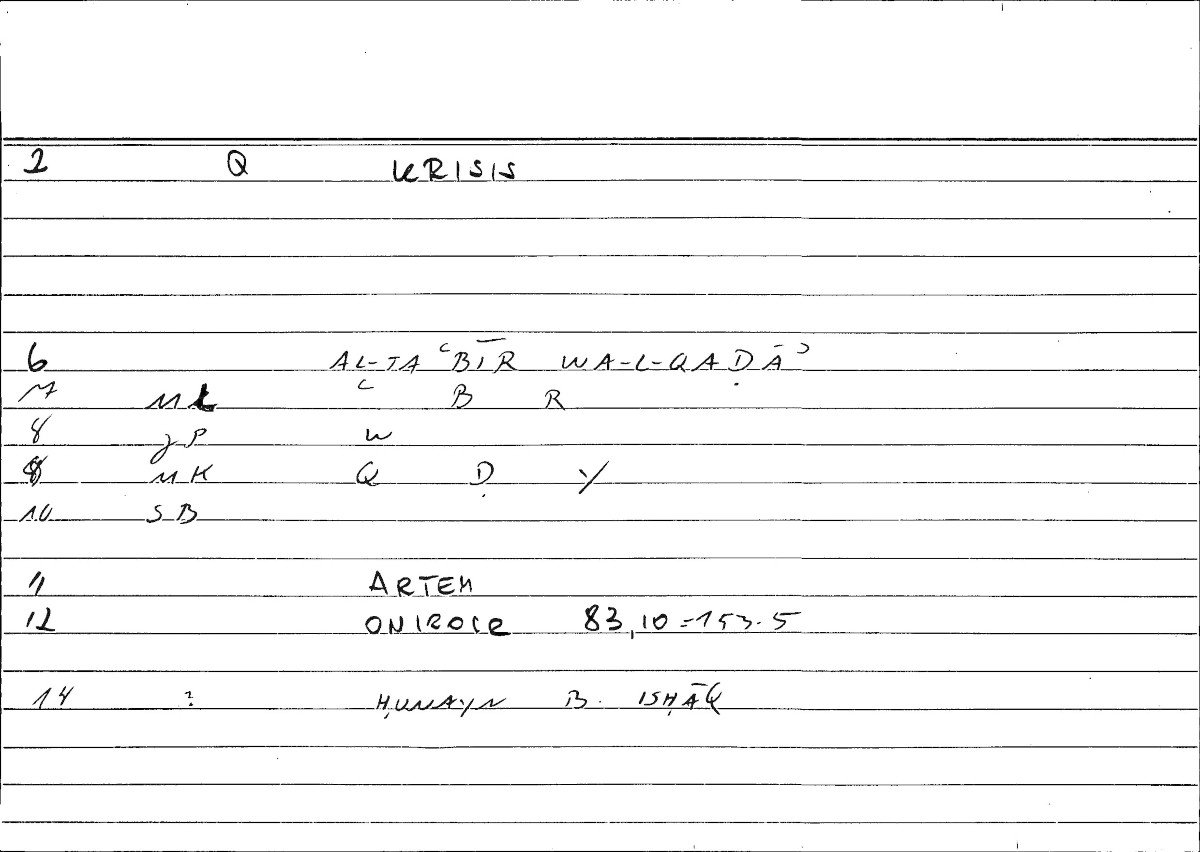 2 Q KRISIS
6 AL-TAʿBĪR WA-L-QAḌĀʾ
7 MK ʿ B R
8 JP W
9 MK Q Ḍ Y
10 SB
11 ARTEM
12 ONIROCR 83,10=153.5
14 ? ḤUNAYN B. ISḤĀQ